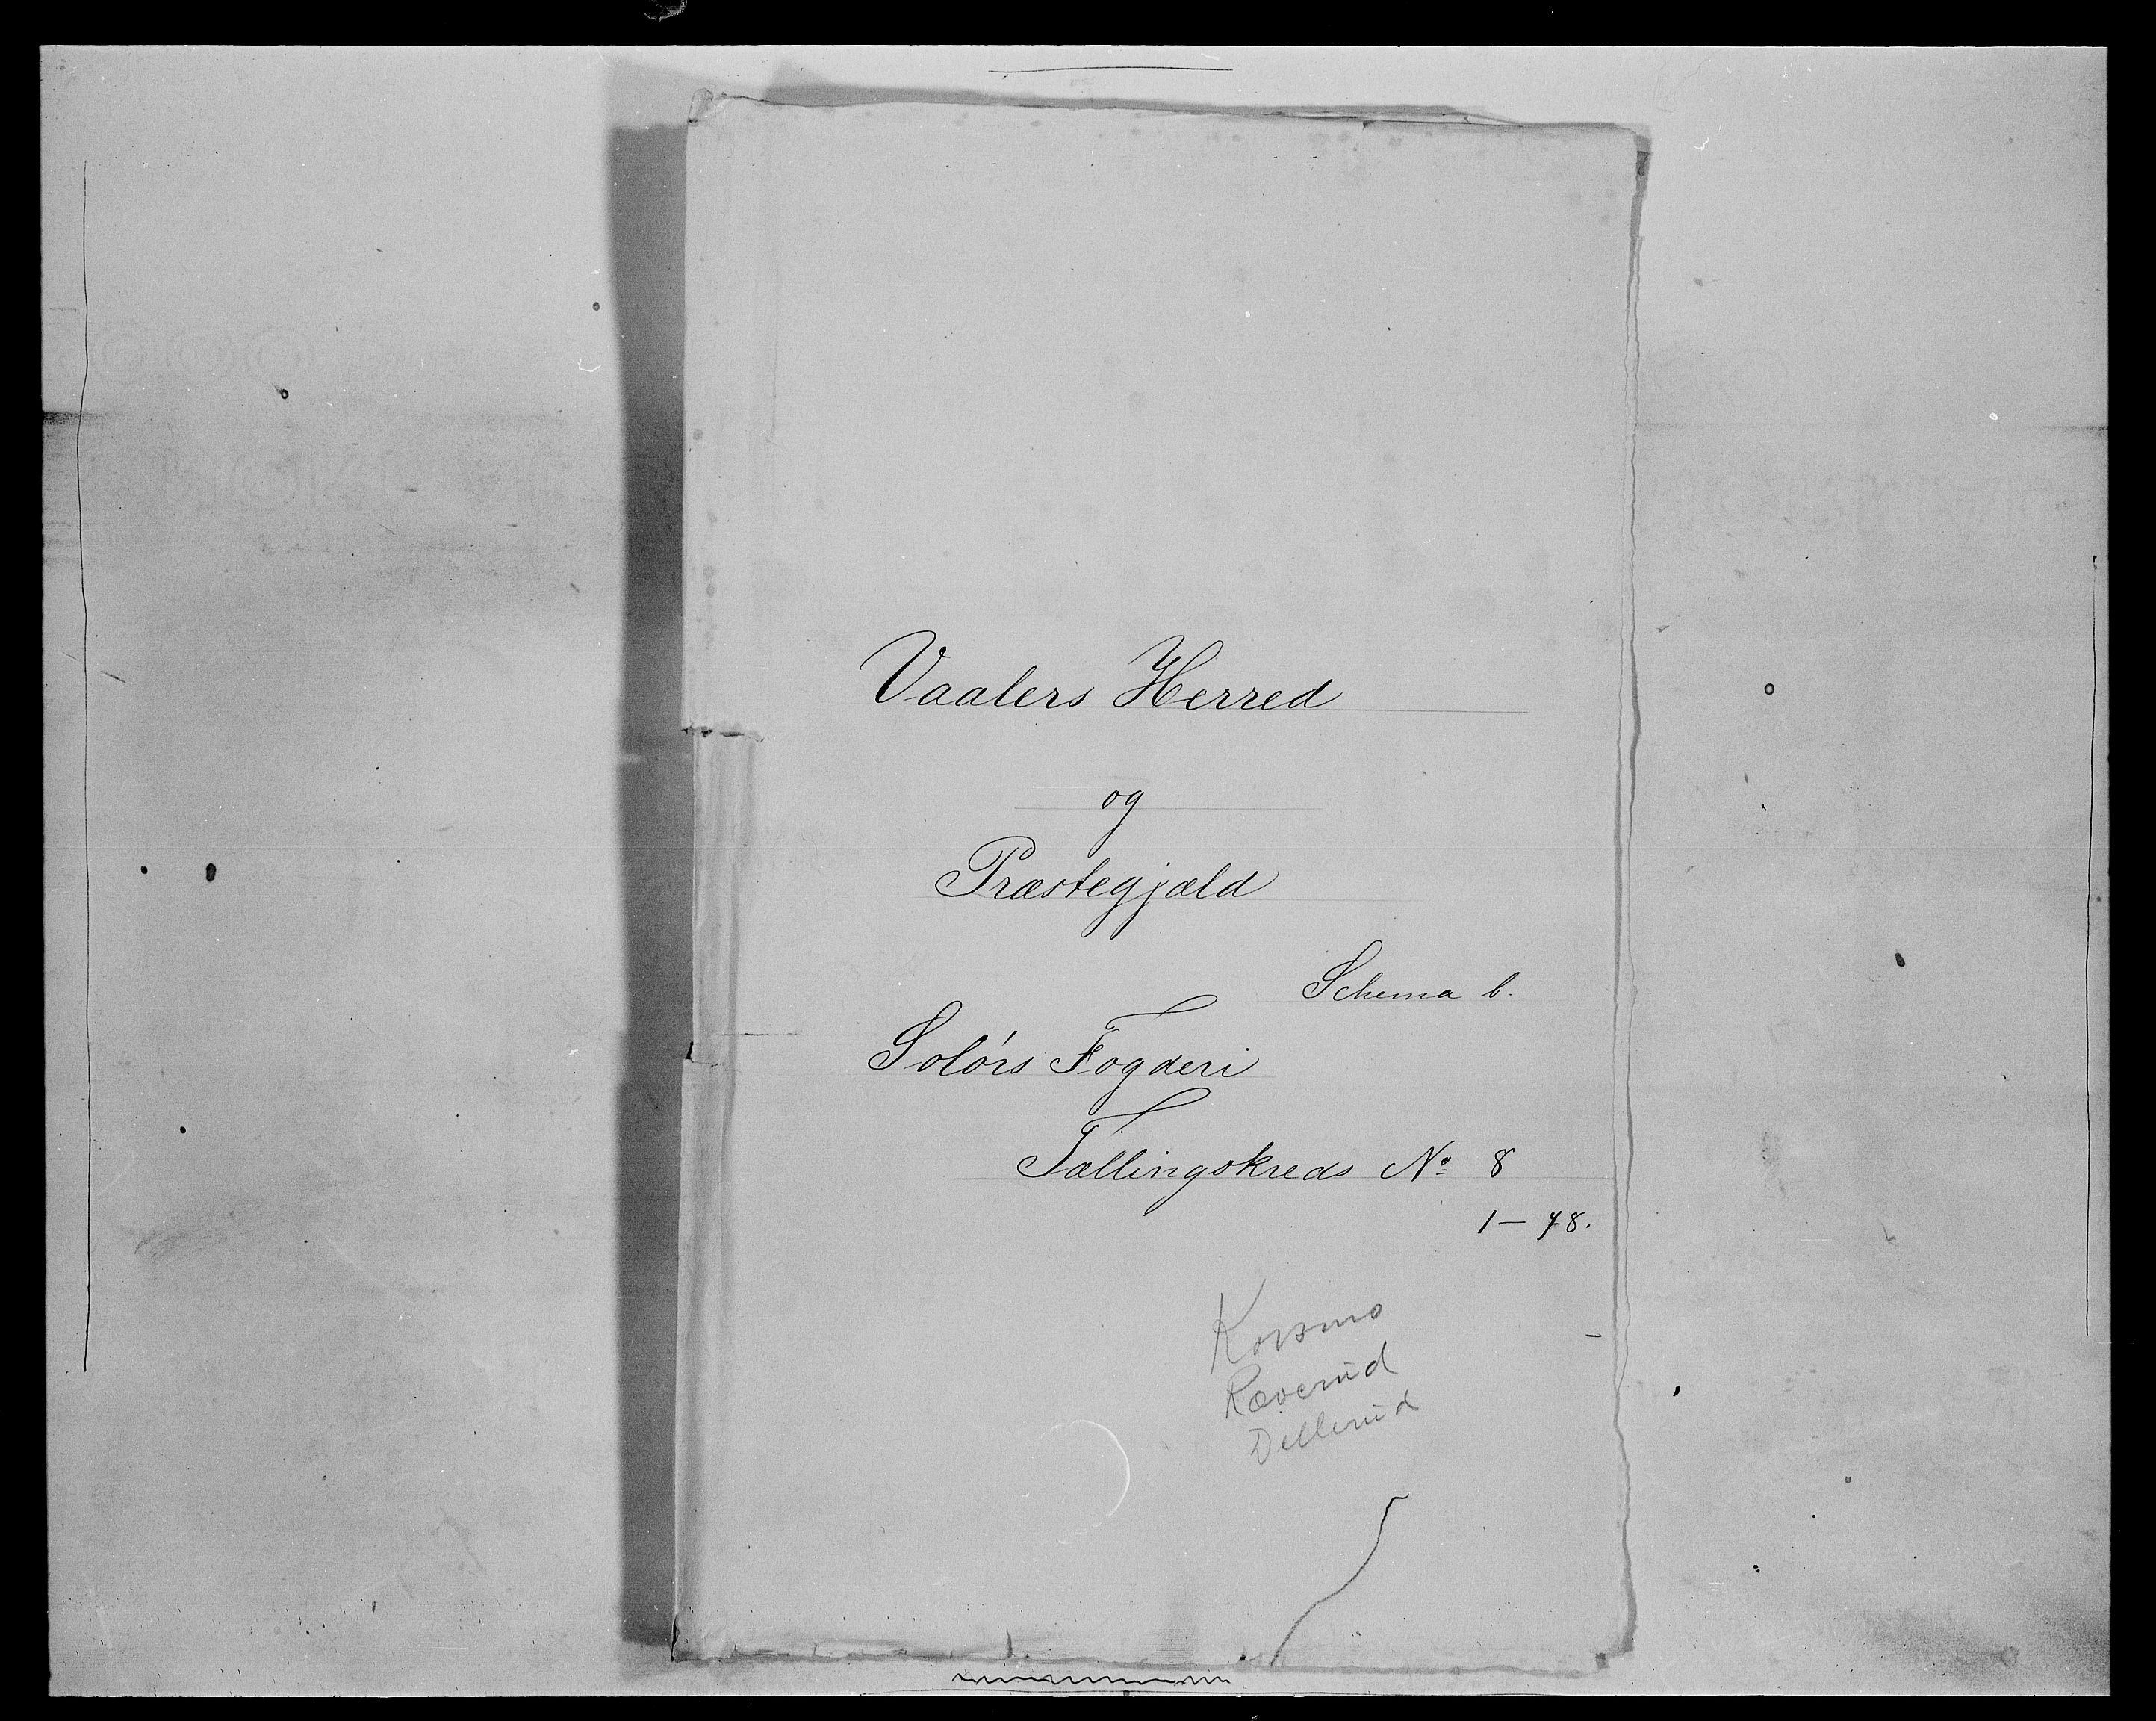 Vaalers Herred
og
Præstegjæld
Schema b.
Solørs Fogderi
Tællingskreds No 8
1-48.
Korsmo
Ræverud
Dellerud